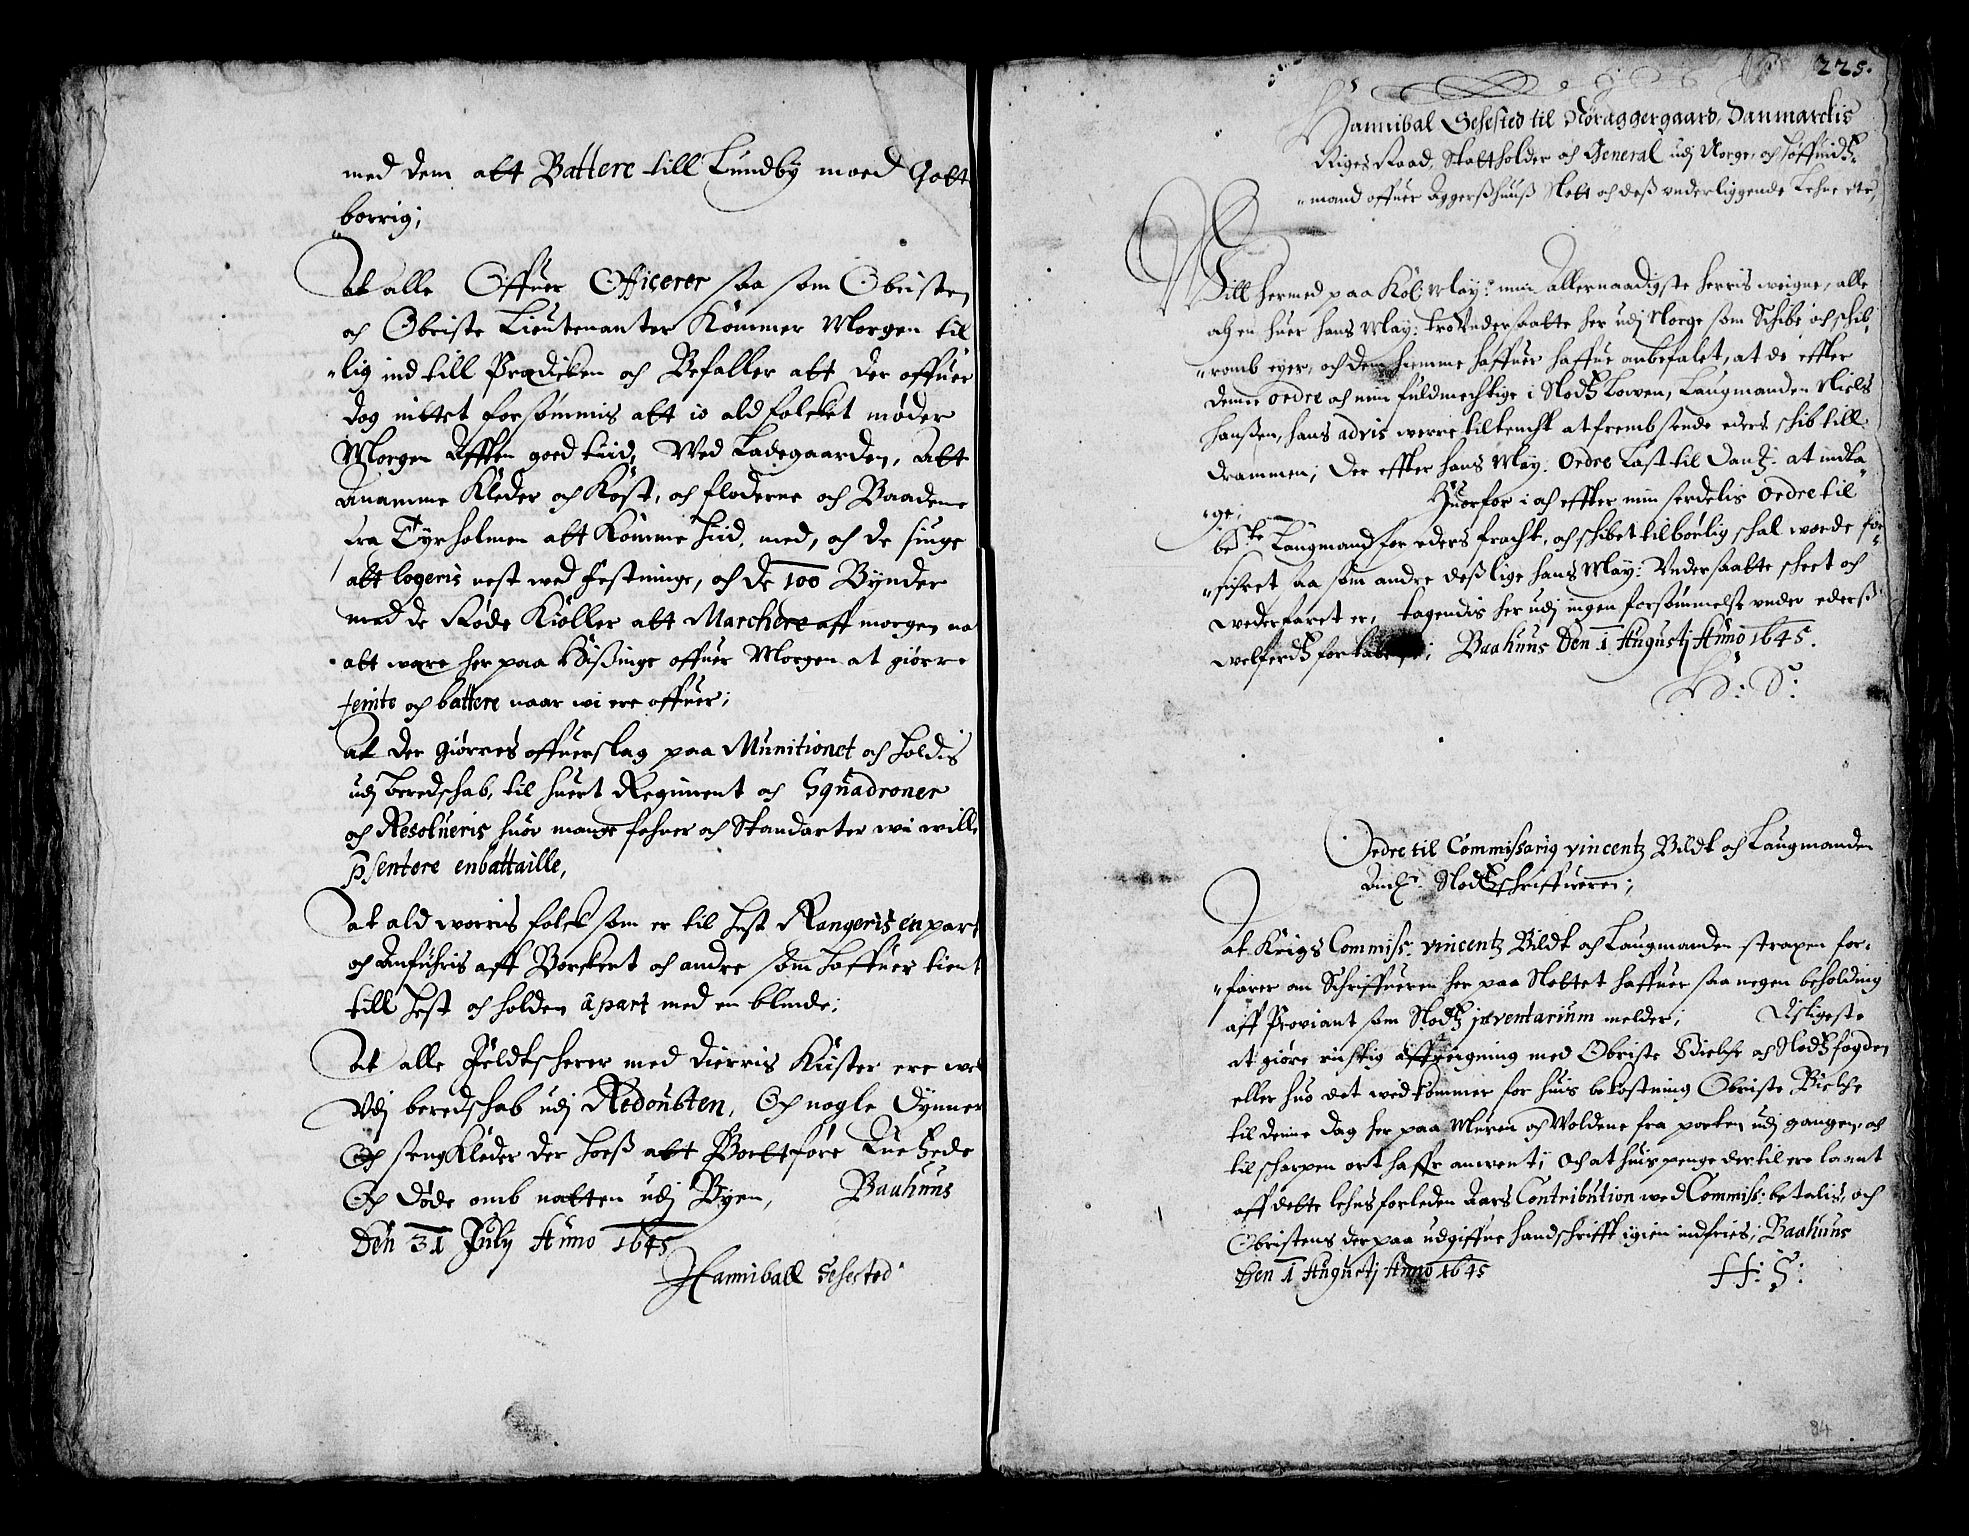 med dem att Battere till Lundby moed Gott
borrig;
At alle Offuer Officerer saa som Obristen
och Obriste Lieutenanter Kommer Morgen til
lig ind till Prædicken och Befaller att der offuer
dog inttet forsømmis att io ald folcket møder
Morgen Afften goed tiid, Wed Ladegaarden, att
Anamme Kleder och Kost, och floderne och Baadene
fra Tyrholmen att Komme hid, med, och de siuge
att logeris nest wed festninge, och de 100 Bynder
med de Røde Kioller att Marchere aff morgen
att ware her paa Hisinge offuer Morgen at giørre
feinte och battere naar wi ere offuer;
At der giørres offuerslag paa Munitionet och holdis
udj beredschab, til huert Regiment och Squadroner
och Resolueris huor mange fahner och Standarter wii wille
psentere enbattaille,
At ald worris folck som er til hest Rangeris en part
och Anføhris aff Borckert och andre som haffuer tient
till hest och holden á part med en blinde;
At alle Feldtscherer med dierris Kiister ere wel
Vdj beredschab udj Redoubten, Och nogle Dynner
Och sengKleder der hoeß att Bortføre Quetzede
Och døde omb natten udj Byen, Baahuus
Den 31 July Anno 1645
Hanniball Sehested
225.
Hannibal Sehested til Nøraggergaard, Danmarckis
Riges Raad, Stattholder och General udj Norge, och høffuidtz
mand offuer Aggershuuß Slott och deß vnderliggende Lehne etc,
Will hermed paa Kol: May: min Allernaadigste herris weigne, alle
och en huer hans May: tro Vndersaatte her udj Norge som Schibe och schib
romb eyer, och dem hiemme haffuer haffue anbefalet, at de effter
denne ordre och min fuldmechtige i Slodtz Lowen, Laugmanden Niels
Hanßen, hans advis werre tiltencht at frembsende eders schib till
Drammen; der effter hans May: Ordre Last til Dantz: at indta
ge; Huorfor i och effter min serdelis Ordre til
beste Laugmand for eders fracht, och schibet tilbørlig schal worde for
sichret saa som andre deßlige hans May: Vndersaatte scheet och
wederfaret er, tagendis her udj ingen forsømmelse vnder ederß
welferdtz fortabelse; Baahuus Den 1 Augustj Anno 1645.
H: S:
Ordre til Commissarig vincentz Bildt och Laugmanden
Slodtzschriffueren;
At Krigs Commiss: vincentz Bildt och Laugmanden straxen for
farer om Schriffueren her paa Slottet haffuer saa megen beholding
aff Proviant som Slodtz inventarium melder; Disligeste
at giøre richtig affreigning med Obriste Bielche och Slodtzfogden
eller huo det wedkommer for huis bekostning Obriste Bielche
til denne dag her paa Muren och Woldene fra porten udj gangen, och
til scharpen ort haffr anwent; Och at huis penge der til ere laant
aff dette lehns forleden Aars Contribution wed Commiss: betalis, och
Obristens der paa udgiffne handschrifft igien indfries; Baahuus
Den 1 Augustj Anno 1645
H: S:
84